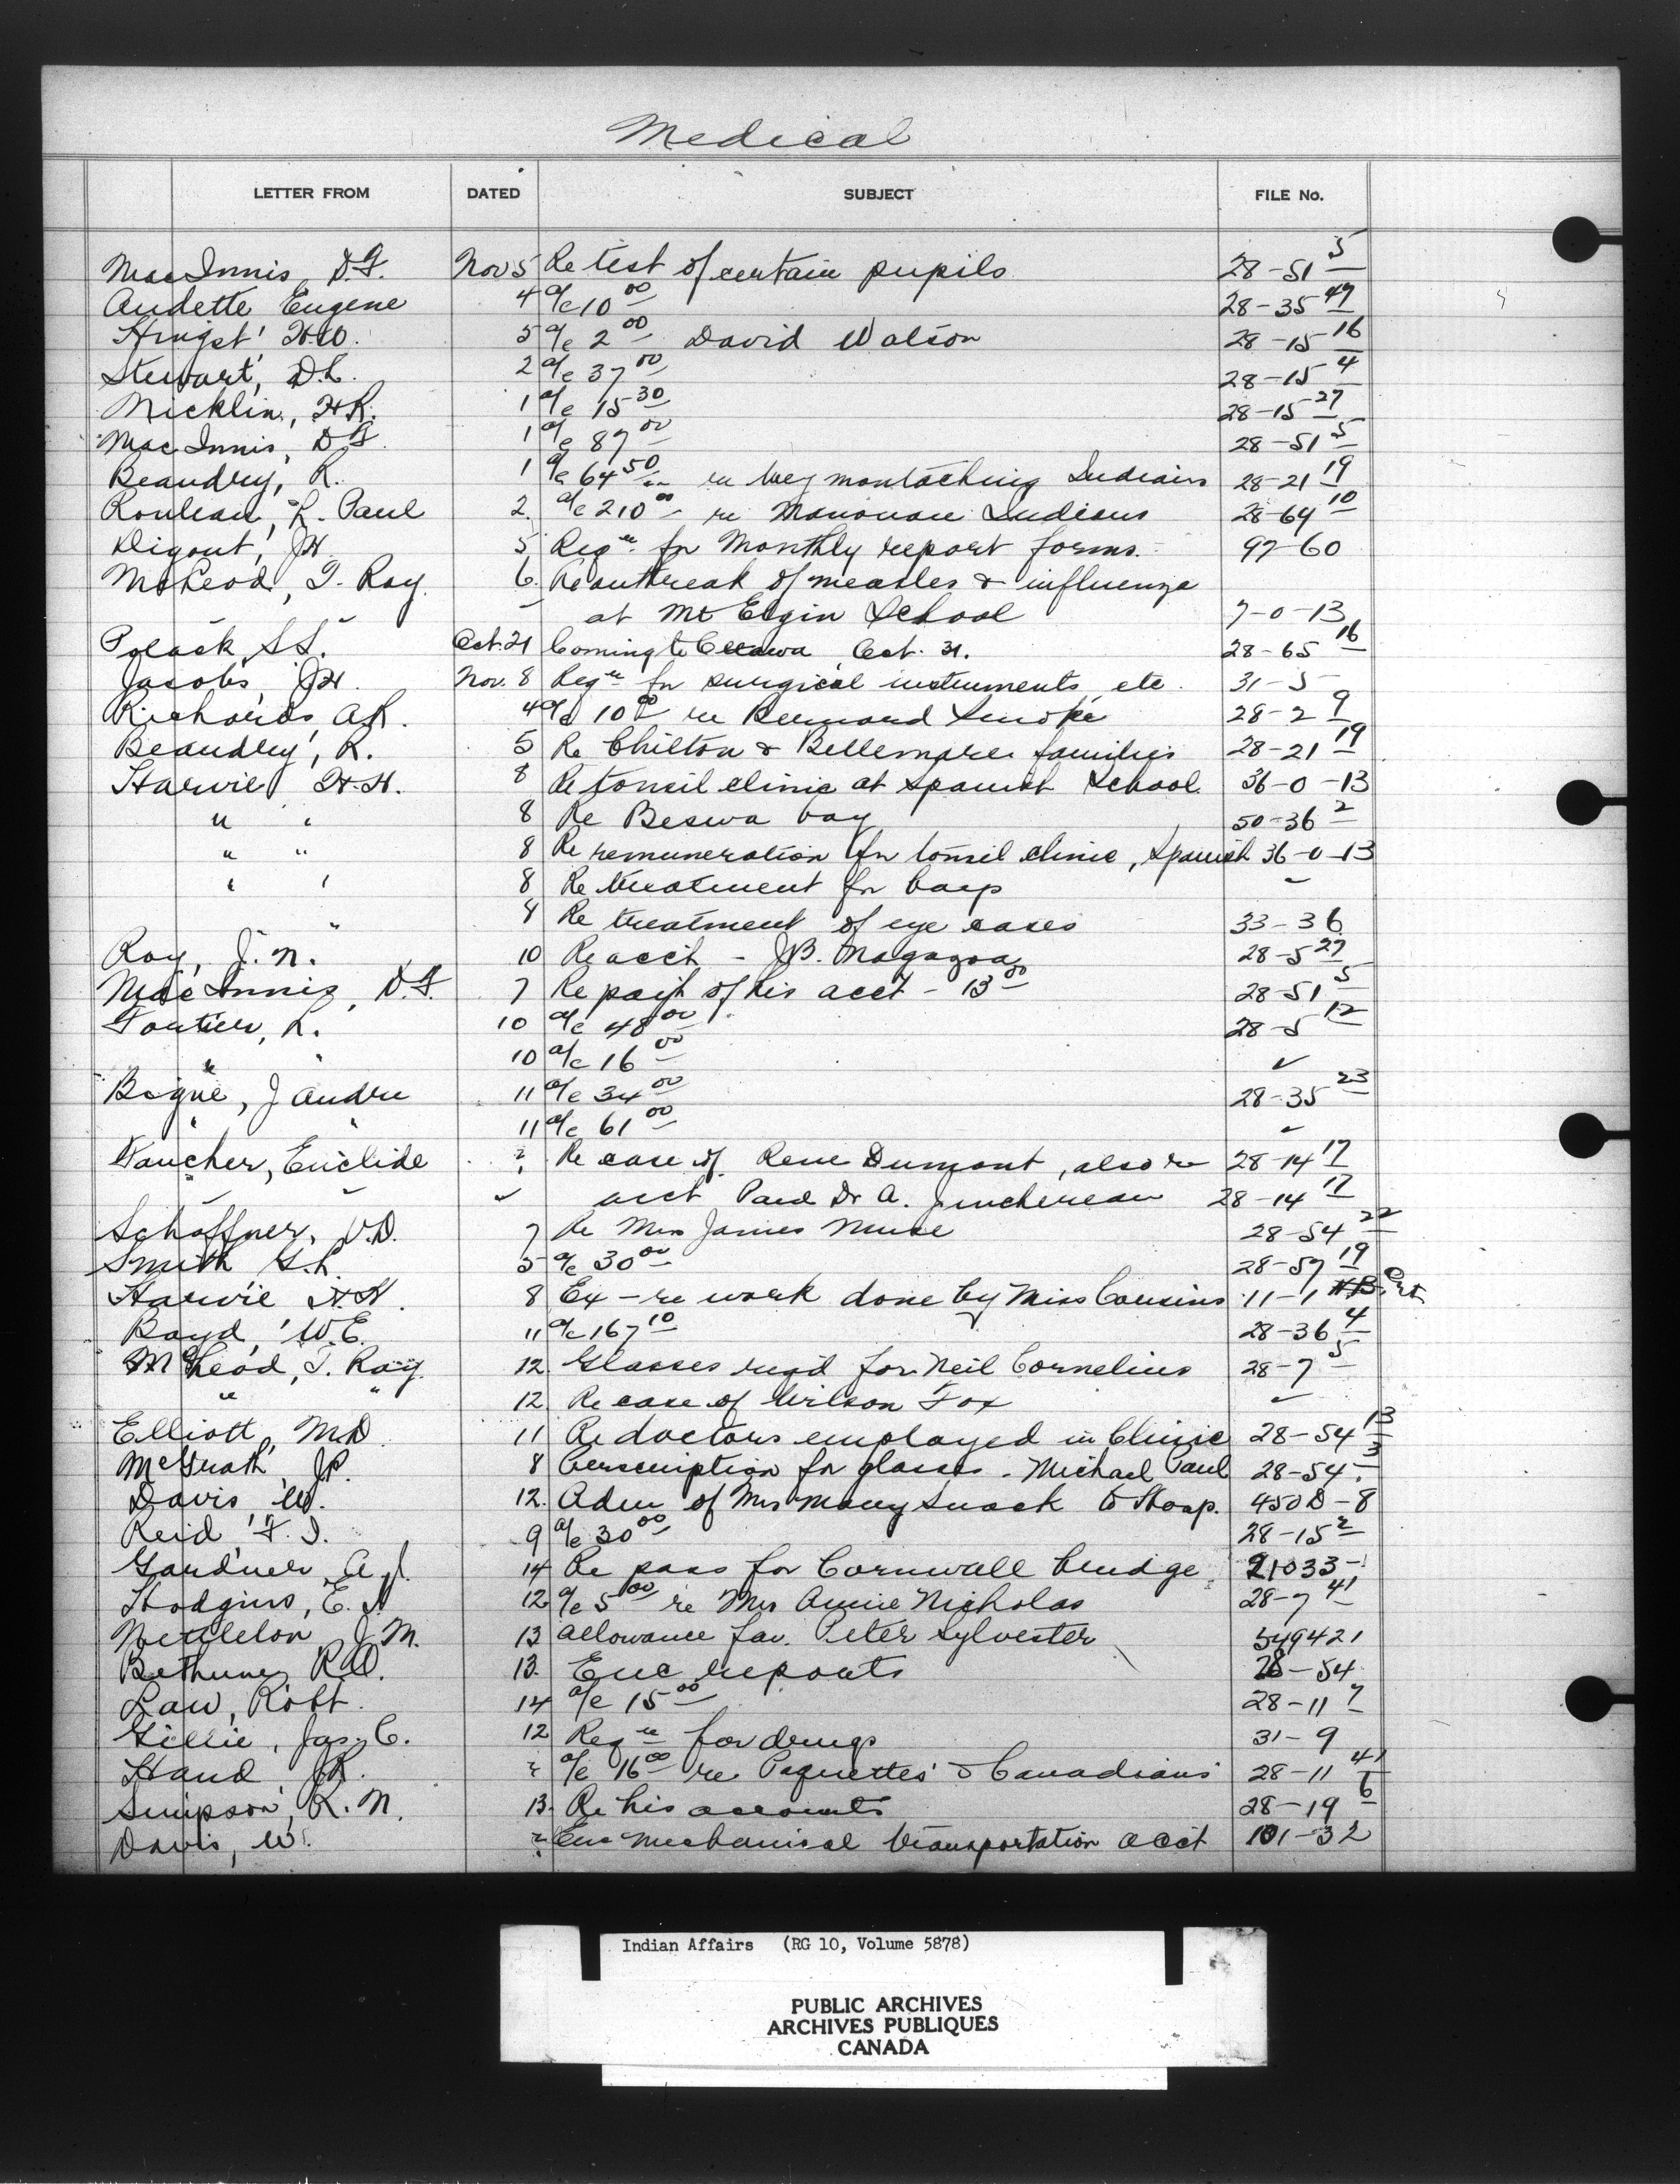 Medical
LETTER FROM DATED SUBJECT FILE No.
MacInnis, D.F. Nov 5 Re test of certain pupils 28-51 5
Audette Eugene 4 a/c 10 00 28-35 47
5 a/c 2 00 David Watson 28-15 16
Stewart, D.L. 2 a/c 37 00 28-15 4
Nicklin, H.R. 1 a/c 15 30 28-15 27
MacInnis, D.F. 1 a/c 87 00 28-51 5
Beaudry, R. 1 a/c 64 50 re Weymontaching Indians 28-21 19
Rouleau, L. Paul 2. a/c 210 00 re Manouan Indians 28-64 10
Digout, J.H. 5 Reqn for Monthly report forms. 97-60
McLeod, T. Ray. 6. Re outbreak of measles & influenza
at Mt Elgin School 7-0-13
Polack, S.S. Oct. 21 Coming to Ottawa Oct. 31. 28-65 16
Jacobs, J.H. Nov. 8 Reqn for surgical instruments, etc. 31-5
Richards, A.R. 4 a/c 10 00 re Bernard Smoke 28-2 9
Beaudry, R. 5 Re Chilton & Bellemare families 28-21 19
Harvie H.H. 8 Re tonsil clinic at Spanish School 36-0-13
" " 8 Re Beswa boy 50-36 2
" " 8 Re remuneration for tonsil clinic, Spanish 36-0-13
" " 8 Re treatment for boys ✓
" 8 Re treatment of eye cases 33-36
Roy, J.N. 10 Re acct - J.B. 28-5 27
MacInnis, D.F. 7 Re paym't of his acct - 13 00 28-51 5
Fortier, L. 10 a/c 48 00 28-5 12
" " 10 a/c 16 00 ✓
J Andre 11 a/c 34 00 28-35 23
" " 11 a/c 61 00 ✓
Vaucher, Euclide ? Re case of Rene Dumont, also re 28-14 17
" ✓ ✓ ✓ acct Paid Dr A. Juchereau 28-14 17
Schaffner, V.D. 7 Re Mrs James Muse 28-54 22
Smith G.L. 5 a/c 30 00 28-57 19
Harvie H.H. 8 Ex - re work done by Miss Cousins 11-1
Boyd, W.E. 11 a/c 167 10 28-36 4
McLeod, T. Ray. 12. Glasses req'd for Neil Cornelius 28-7 5
" " 12. Re case of Wilson Fox ✓
Elliott, M.D. 11 Re doctors employed in Clinic 28-54 13
McGrath, J.P. 8 Perscription for glasses - Michael Paul 28-54 3
Davis, W. 12. Adm of Mrs Mary Snack to Hosp. 450D-8
Reid, F.I. 9 a/c 30 00 28-15 2
Gardner, A.J. 14 Re pass for Cornwall bridge 21033-
Hodgins, E.L. 12 a/c 5 00 re Mrs Annie Nicholas 28-7 41
Nettleton J.M. 13 Allowance fav. Peter Sylvester 549421
Bethune, R.D. 13. Enc reports 28-54
Law, Robt. 14 a/c 15 00 28-11 7
Gillie, Jas. C. 12 Reqn for drugs 31-9
Hand, J.R. ? a/c 16 00 re Paquettes & Canadians 28-11 41
Simpson, R.N. 13. Re his accounts 28-19 6
Davis, W. ? Enc mechanical transportation acct 101-32
Indian Affairs (RG 10, Volume 5878)
PUBLIC ARCHIVES
ARCHIVES PUBLIQUES
CANADA